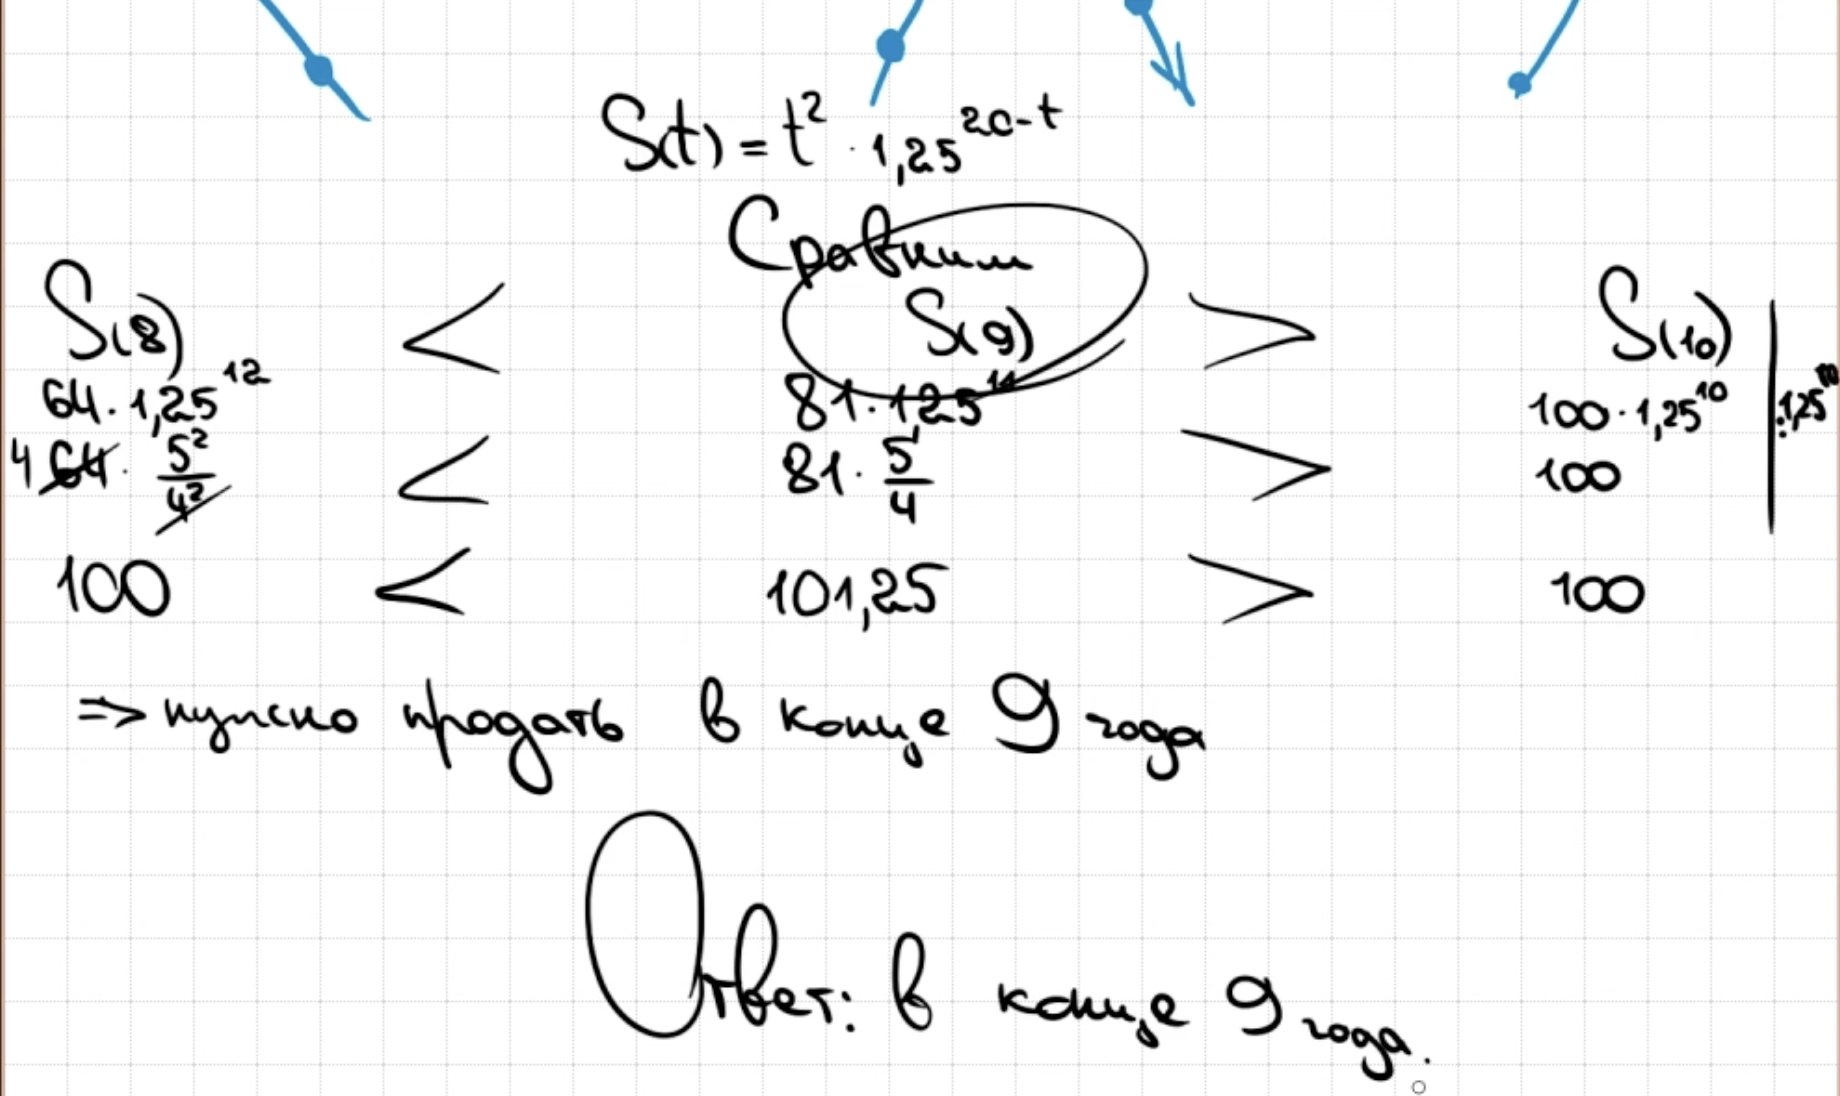 S(t) = t² · 1,25²⁰⁻ᵗ
Сравним
S(8) < S(9) > S(10)
64 · 1,25¹² 81 · 1,25¹¹ 100 · 1,25¹⁰ | : 1,25¹⁰
4 64 · 5²/4² < 81 · 5/4 > 100
100 < 101,25 > 100
=> нужно продать в конце 9 года
Ответ: в конце 9 года.